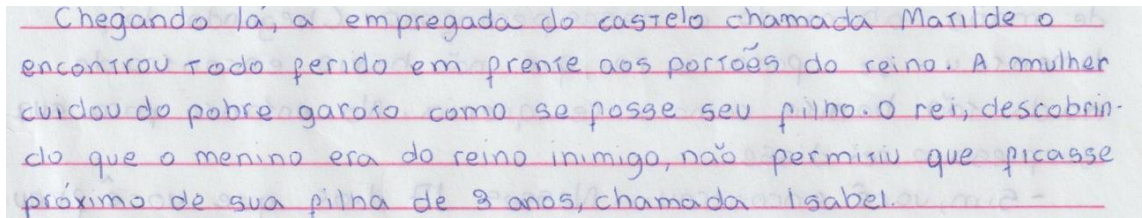 Chegando lá, a empregada do castelo chamada Matilde o
encontrou todo ferido em frente aos portões do reino. A mulher
cuidou do pobre garoto como se fosse seu filho. O rei, descobrin-
do que o menino era do reino inimigo, não permitiu que ficasse
próximo de sua filha de 3 anos, chamada Isabel.